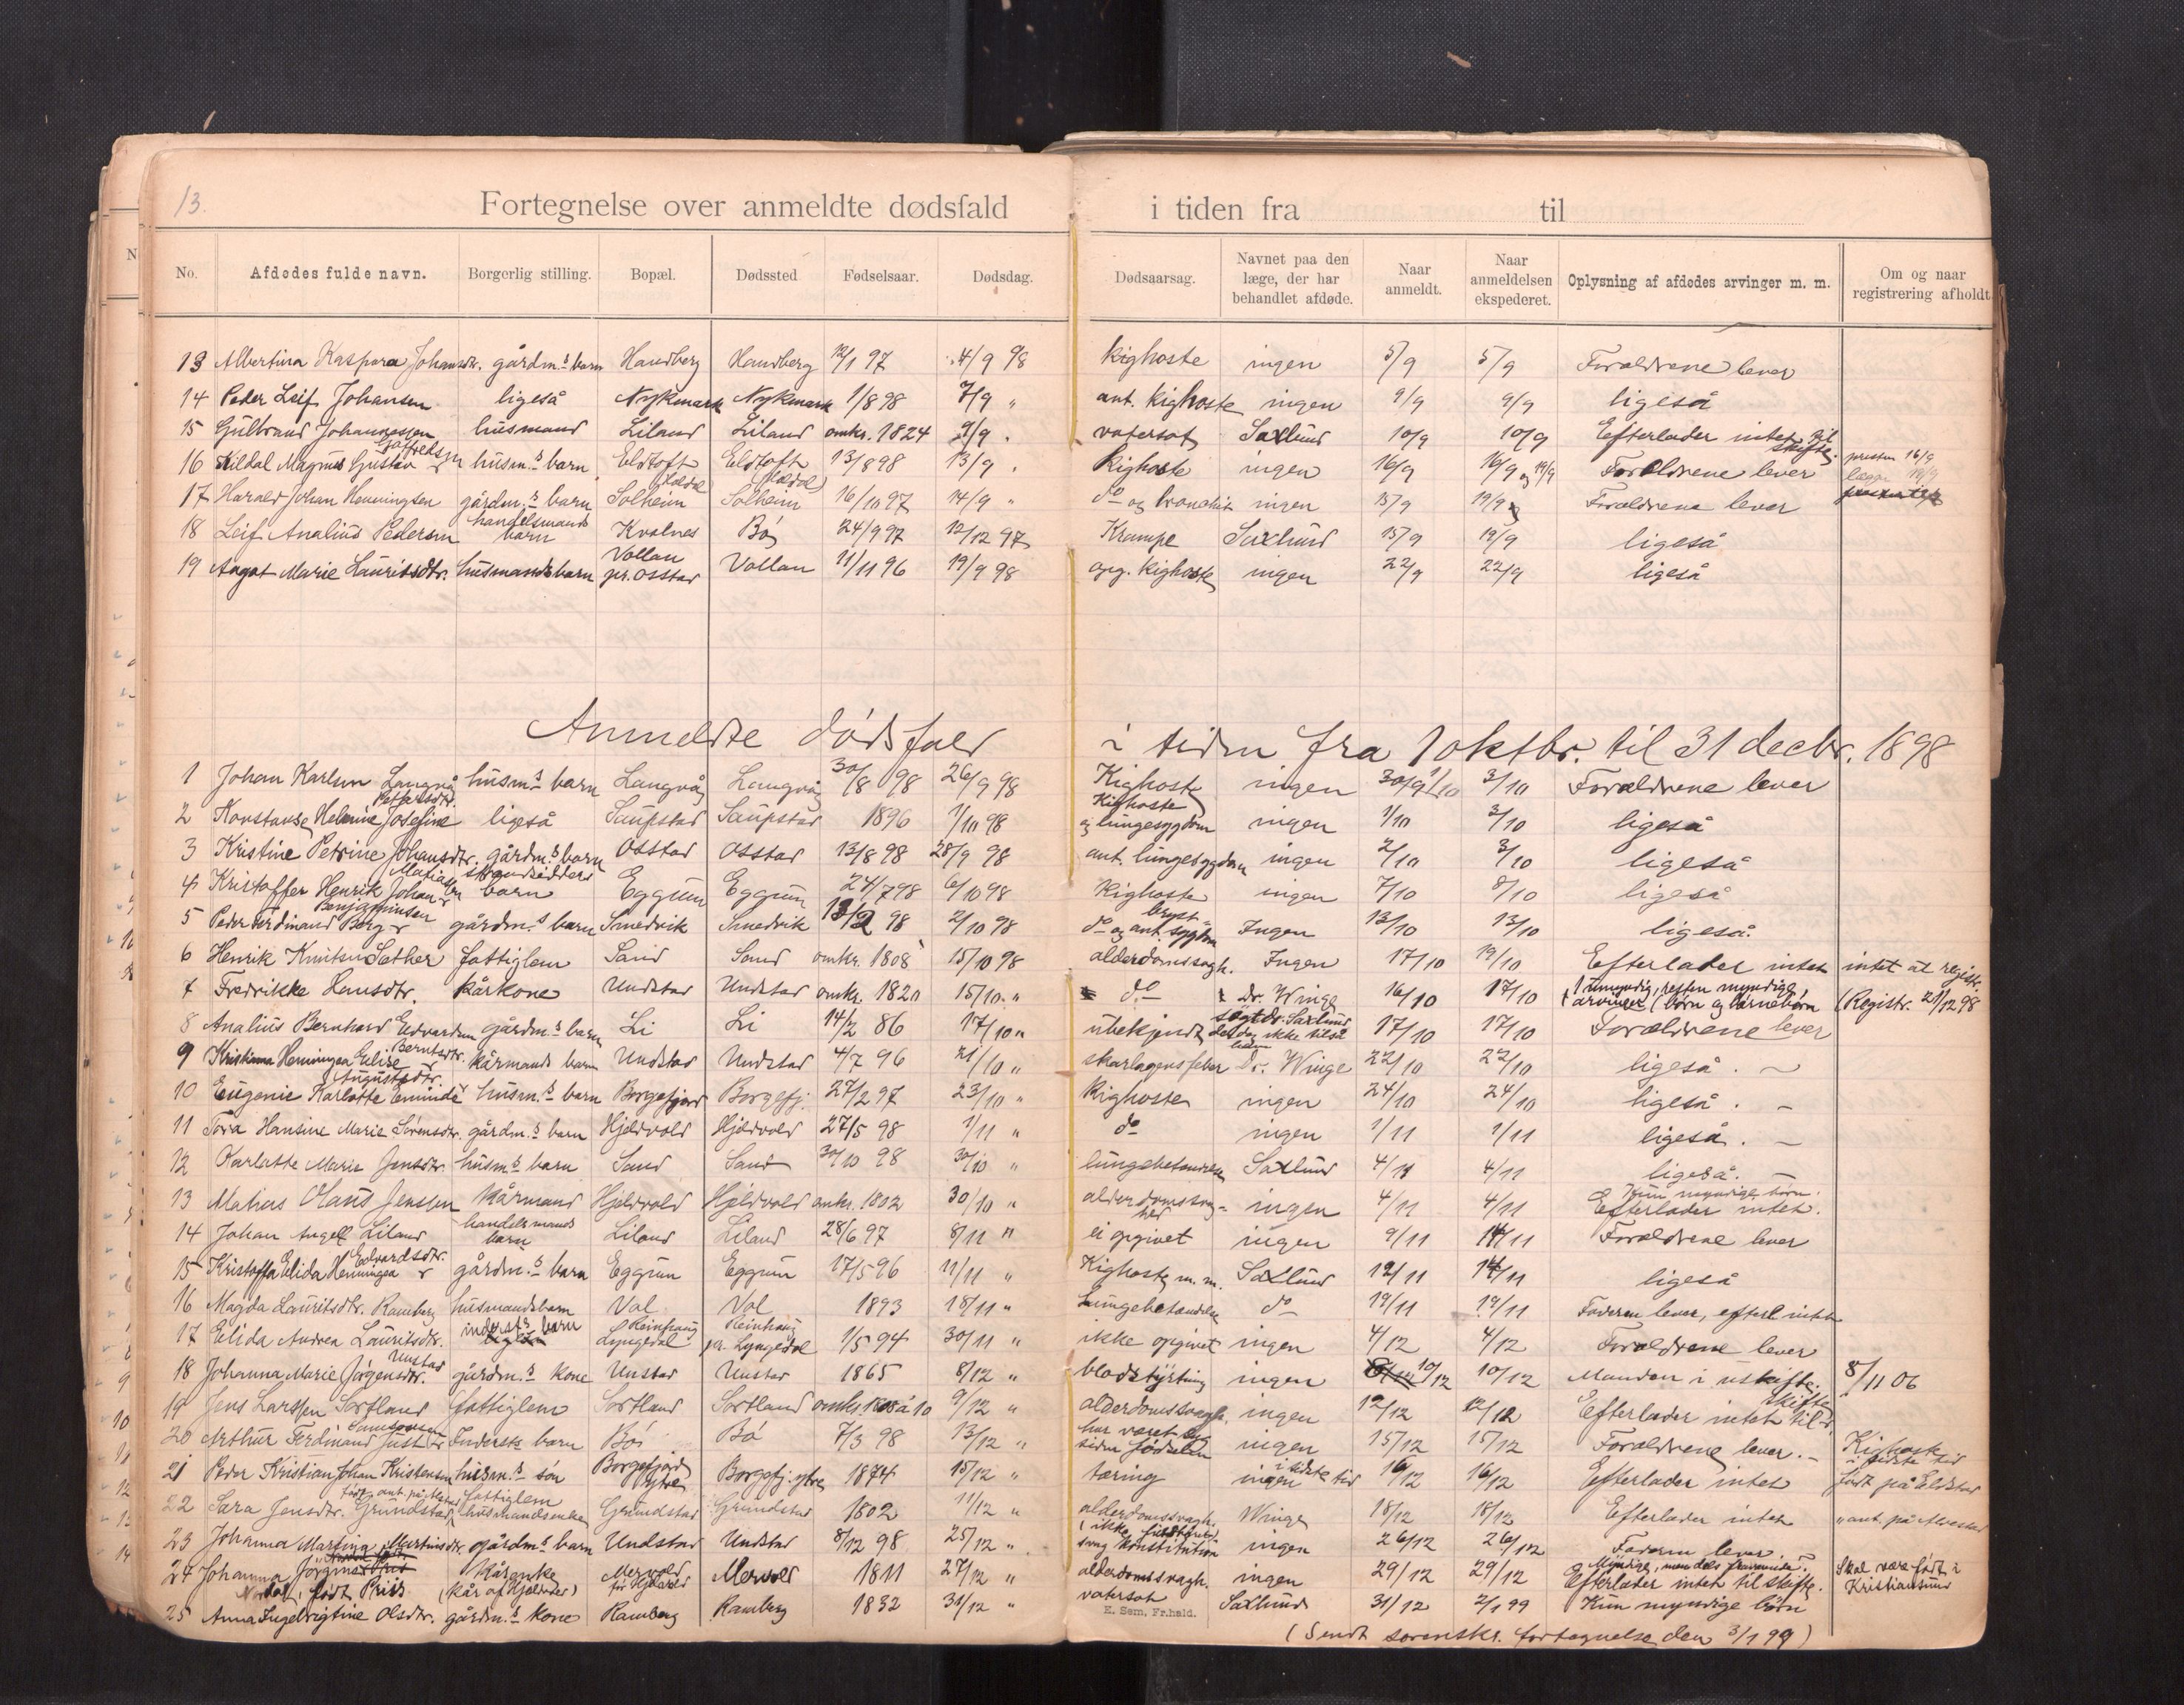 13.
Fortegnelse over anmeldte dødsfald i tiden fra til
No. Afdødes fulde navn. Borgerlig stilling. Bopæl. Dødssted Fødselsaar. Dødsdag. Dødsaarsag. Navnet paa den læge, der har behandlet afdøde. Naar anmeldt. Naar anmeldelsen ekspederet. Oplysning af afdødes arvinger m. m. Om og naar registrering afholdt
13 Albertina Kaspara Johansdtr. gårdm.s barn Handberg Handberg 12/1 97 4/9 98 Kighoste ingen 5/9 5/9 Forældrene lever
14 Peder Leif Johansen ligeså Nykmark Nykmark 1/8 98 7/9 " ant. kighoste ingen 9/9 9/9 ligeså
15 Gulbrand Johannessen husmand Liland Liland omkr. 1824 9/9 " vatersot Saxlund 10/9 10/9 Efterlader intet til skifte.
16 Kildal Magnus Gustav Gotfredsen husm.s barn Eldtoft Eldtoft 13/8 98 13/9 " Kighoste ingen 16/9 16/9 og 19/9 Forældrene lever presten 16/9
17 Harald Johan Henningsen gårdm.s barn Solheim Solheim 16/10 97 14/9 " do og bronchit ingen 15/9 19/9 Forældrene lever
18 Leif Analius Pedersen handelsmands barn Kvalnes Bø 24/9 97 12/12 97 Krampe Saxlund 15/9 19/9 ligeså
19 Aagot Marie Lauritsdtr. husmandsbarn Vollan pr. Osstad Vollan 11/11 96 19/9 98 opg. kighoste ingen 22/9 22/9 ligeså
Anmeldte dødsfald i tiden fra 1 oktbr. til 31 decbr. 1898
1 Johan Karlsen Langvå husm.s barn Langvåg Langvåg 30/8 98 26/9 98 Kighoste ingen 30/9 1/10 3/10 Forældrene lever
2 Konstanse Helmine Josefine Petersdtr. ligeså Saupstad Saupstad 1896 1/10 98 Kighoste og lungesygdom ingen 1/10 3/10 ligeså
3 Kristine Petrine Johansdtr. gårdm.s barn Osstad Osstad 13/8 98 28/9 98 ant. lungesygdom ingen 2/10 3/10 ligeså
4 Kristoffer Henrik Johan Matiassen strandsidders barn Eggum Eggum 24/7 98 6/10 98 Kighoste ingen 7/10 8/10 ligeså
5 Peder Ferdinand Berg Benjaminsen gårdm.s barn Smedvik Smedvik 13/2 98 2/10 98 do og ant. bryst-sygdom Ingen 13/10 13/10 ligeså.
6 Henrik Knutsen Sather fattiglem Sand Sand omkr. 1808 15/10 98 alderdomssvagh. Ingen 17/10 19/10 Efterlader intet intet at registr.
7 Fredrikke Hansdtr. kårkone Undstad Undstad omkr. 1820 15/10 " do Dr. Winge 16/10 17/10 1 umyndig, resten myndige arvinger (børn og børnebørn (Registr. 21/12 98
8 Analius Bernhard Edvardsen gårdm.s barn Li Li 14/2 86 17/10 " ubekjendt søgt dr. Saxlund det dog ikke tilså 17/10 17/10 Forældrene lever
9 Kristianna Henningea Elise Berntsdtr. kårmands barn Undstad Undstad 4/7 96 21/10 " skarlagensfeber Dr. Winge 22/10 22/10 ligeså.
10 Eugenie Karlotte Eminde Augustsdtr. husm.s barn Borgefjord Borgefj. 27/2 97 23/10 " Kighoste ingen 24/10 24/10 ligeså.
11 Tora Hansine Marie Sørensdtr. gårdm.s barn Hjeldvold Hjeldvold 27/5 98 1/11 " do ingen 1/11 1/11 ligeså.
12 Karlatte Marie Jensdtr. husm.s barn Sand Sand 30/10 98 30/10 " lungebetændelse Saxlund 4/11 4/11 ligeså.
13 Matias Olaus Jenssen Kårmand Hjeldvold Hjeldvold omkr. 1802 30/10 " alderdomssvag-hed ingen 4/11 4/11 Kun myndige børn. Efterlader intet.
14 Johan Angell Liland handelsmands barn Liland Liland 28/6 97 8/11 " ei opgivet ingen 9/11 14/11 Forældrene lever
15 Kristoffa Elida Henningea Edvardsdtr. gårdm.s barn Eggum Eggum 17/5 96 11/11 " Kighoste m. m. Saxlund 12/11 14/11 ligeså
16 Magda Lauritsdtr. Ramberg husmandsbarn Val Val 1893 18/11 " Lungebetændelse do 19/11 19/11 Faderen lever, efterl intet
17 Elida Andrea Lauritsdtr. inderst.s barn Reinhaug Lyngedal Reinhaug pr. Lyngedal 1/5 94 30/11 " ikke opgivet ingen 4/12 4/12 Forældrene lever
18 Johanna Marie Jørgensdtr. Unstad gårdm.s kone Unstad Unstad 1865 8/12 " blodstyrtning ingen 10/12 10/12 Manden i uskifte. 8/11 06
19 Jens Larssen Sortland fattiglem Sortland Sortland omkr. 10 9/12 " alderdomssvagh. ingen 12/12 12/12 Efterlader intet til skifte
20 Arthur Ferdinand Just Inderst.s barn Bø Bø 7/3 98 13/12 " har været syg siden fødselen ingen 15/12 15/12 Forældrene lever. Kighoste i sidste tid
21 Peder Kristian Johan Kristensen husm.s søn Borgefjord ytre Borgefj. ytre 1874 15/12 " tæring ingen i sidste tid 16/12 16/12 Efterlader intet født på Eldstad
22 Sara Jensdtr. Grundstad fattiglem husmandsenke Grundstad Grundstad 1802 11/12 " alderdomssvagh. Winge 18/12 18/12 Efterlader intet
23 Johanna Martina Martinsdtr. gårdm.s barn Undstad Undstad 8/12 98 25/12 " svag konstitution ingen 26/12 26/12 Faderen lever
24 Johanna født Priis Kårenke (kår af Hjeldvold) Mervold Mervold 1811 27/12 " alderdomssvagh. ingen 29/12 29/12 Efterlader intet til skifte. Skal være født i Kristiansund
25 Anna Ingebrigtine Olsdtr. gårdm.s kone Ramberg Ramberg 1832 31/12 " vatersot Saxlund 31/12 2/1 99 Kun myndige børn
E. Sem, Fr.hald.
(Sendt sorenskr. fortegnelse den 3/1 99)